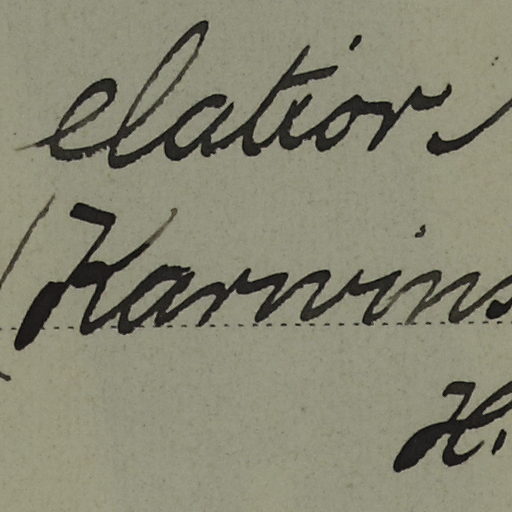 elatior
(Karwins
H.